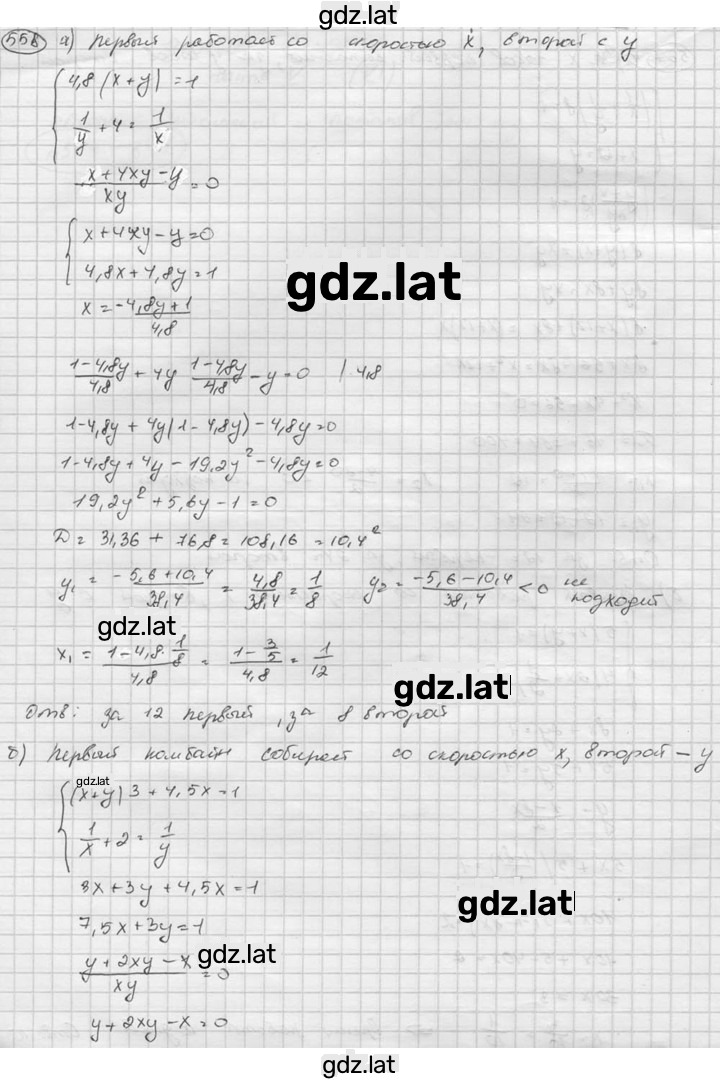 gdz.lat
556 а) Первый работает со скоростью x, второй с y
4,8(x+y)=1
1/y + 4 = 1/x
(x+4xy-y)/xy = 0
x+4xy-y=0
4,8x+4,8y=1
x = (-4,8y+1)/4,8
gdz.lat
(1-4,8y)/4,8 + 4y (1-4,8y)/4,8 - y = 0 | 4,8
1-4,8y+4y(1-4,8y)-4,8y=0
1-4,8y+4y-19,2y²-4,8y=0
19,2y²+5,6y-1=0
D=31,36+76,8=108,16=10,4²
y₁ = (-5,6+10,4)/38,4 = 4,8/38,4 = 1/8 y₂ = (-5,6-10,4)/38,4 < 0 не подходит
gdz.lat
x₁ = (1-4,8·1/8)/4,8 = (1-3/5)/4,8 = 1/12
gdz.lat
Отв: за 12 первый, за 8 второй
б) Первый комбайн собирает со скоростью x, второй – y
gdz.lat
(x+y)3+4,5x=1
1/x + 2 = 1/y
3x+3y+4,5x=1
gdz.lat
7,5x+3y=1
gdz.lat
(y+2xy-x)/xy = 0
y+2xy-x=0
gdz.lat